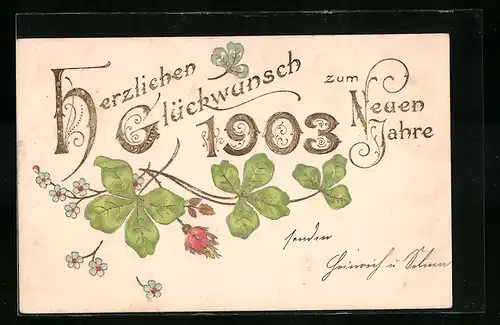 Herzlichen
Glückwunsch
zum
1903
Neuen
Jahre
senden
Heinrich u Selma